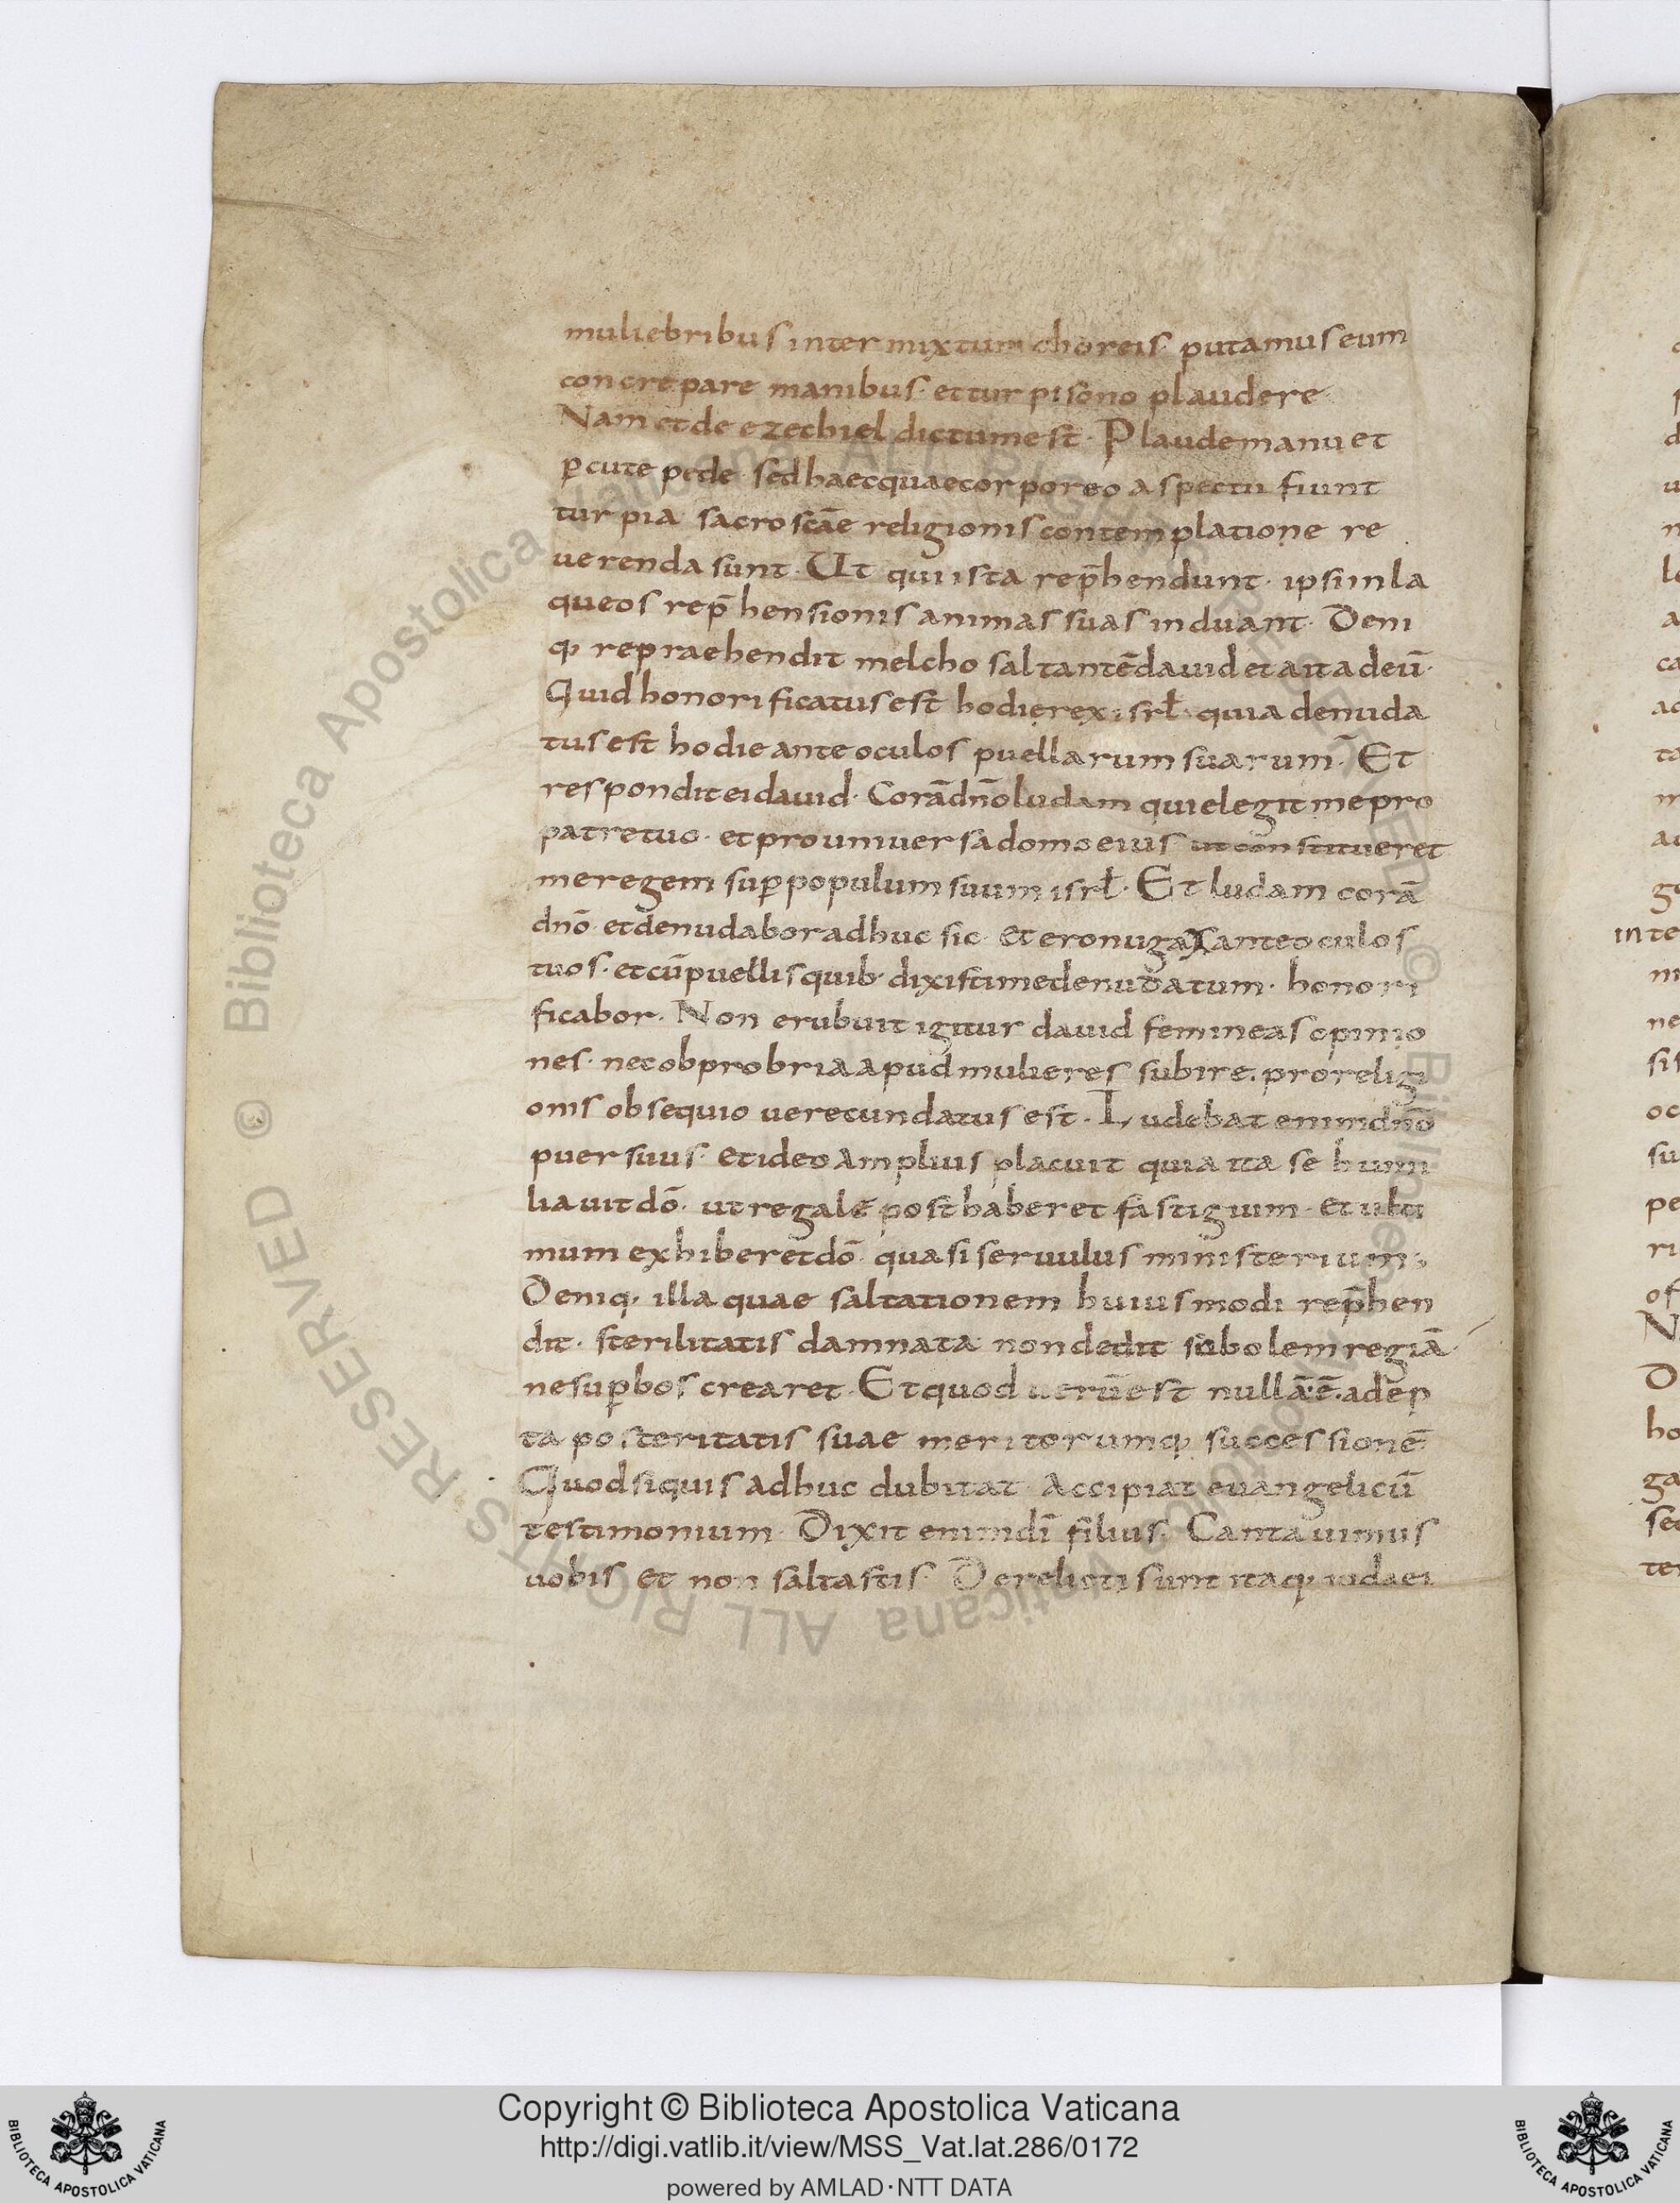 muliebribus intermixtum choreis· putamus eum
concrepare manibus· et turpi sono plaudere·
Nam et de ezechiel dictum est· Plaude manu et
p̄cute pede· sed haec quae corporeo aspectu fiunt
turpia· sacros̄cae religionis contemplatione re
uerenda sunt· Ut qui ista rep̄hendunt· ipsi in la
queos rep̄hensionis animas suas induant· Deni
q; repraehendit melcho saltantē dauid et ait ad eū·
Quid honorificatus est hodie rex isrł· quia denuda
tus est hodie ante oculos puellarum suarum· Et
respondit ei dauid· Corā dn̄o ludam qui elegit me pro
patre tuo· et pro uniuersa domo eius ut constitueret
me regem sup̄ populum suum isrł· Et ludam corā
dn̄o· et denudabor adhuc sic· et ero nugax ante oculos
tuos· et cū puellis quib· dixisti me denudatum· honori
ficabor· Non erubuit igitur dauid femineas opinio
nes· nec obprobria apud mulieres subire· pro religi
onis obsequio uerecundatus est· Ludebat enim dn̄o
puer suus· et ideo amplius placuit quia ita se humi
liauit dō· ut regale posthaberet fastigium· et ulti
mum exhiberet dō· quasi seruulus ministerium·
Deniq; illa quae saltationem huiusmodi rep̄hen
dit· sterilitatis damnata non dedit subolem regiā·
ne sup̄bos crearet· Et quod uerū est nullā· ē· adep
ta posteritatis suae meritorumq; successionē
Quod si quis adhuc dubitat· Accipiat euangelicū
testimonium· Dixit enim dī filius· Cantauimus
uobis et non saltastis· Derelicti sunt itaq; iudaei
inte
© Biblioteca Apostolica Vaticana ALL RIGHTS RESERVED
© Biblioteca Apostolica Vaticana ALL RIGHTS RESERVED
Copyright © Biblioteca Apostolica Vaticana
http://digi.vatlib.it/view/MSS_Vat.lat.286/0172
powered by AMLAD·NTT DATA
BIBLIOTECA APOSTOLICA VATICANA
BIBLIOTECA APOSTOLICA VATICANA